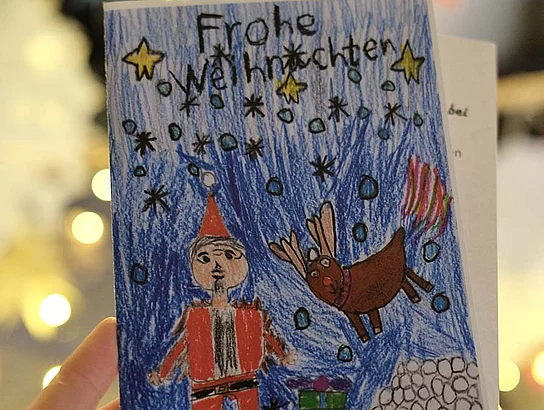 Frohe
Weihnachten
bei
n